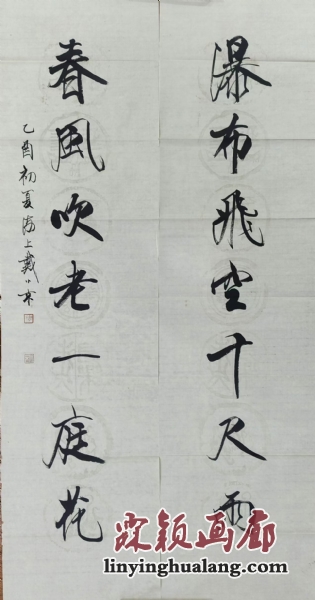 瀑布飛空十尺雨
春風吹老一庭花
乙酉初夏海上戴小京
霖颖画廊
linyinghualang.com